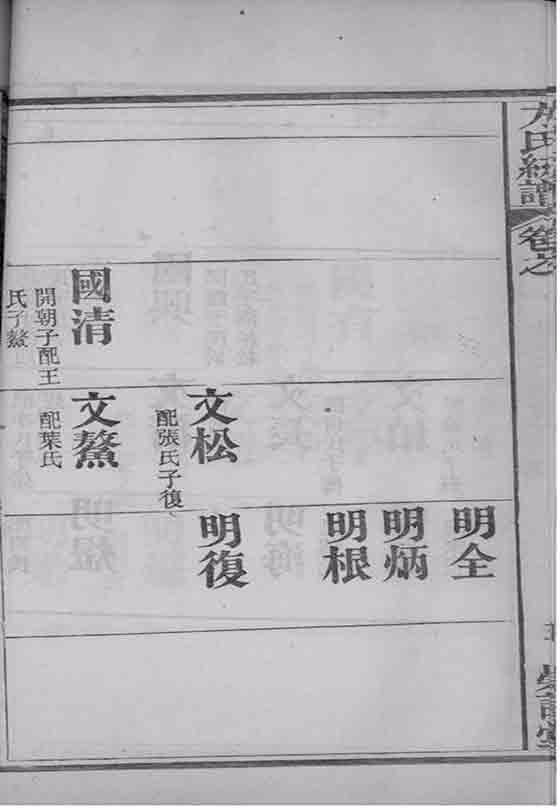 方氏統譜 卷之
明全
明炳
明根
文松
配張氏子復
明復
國清
開朝子配王
氏子鰲
文鰲
配葉氏